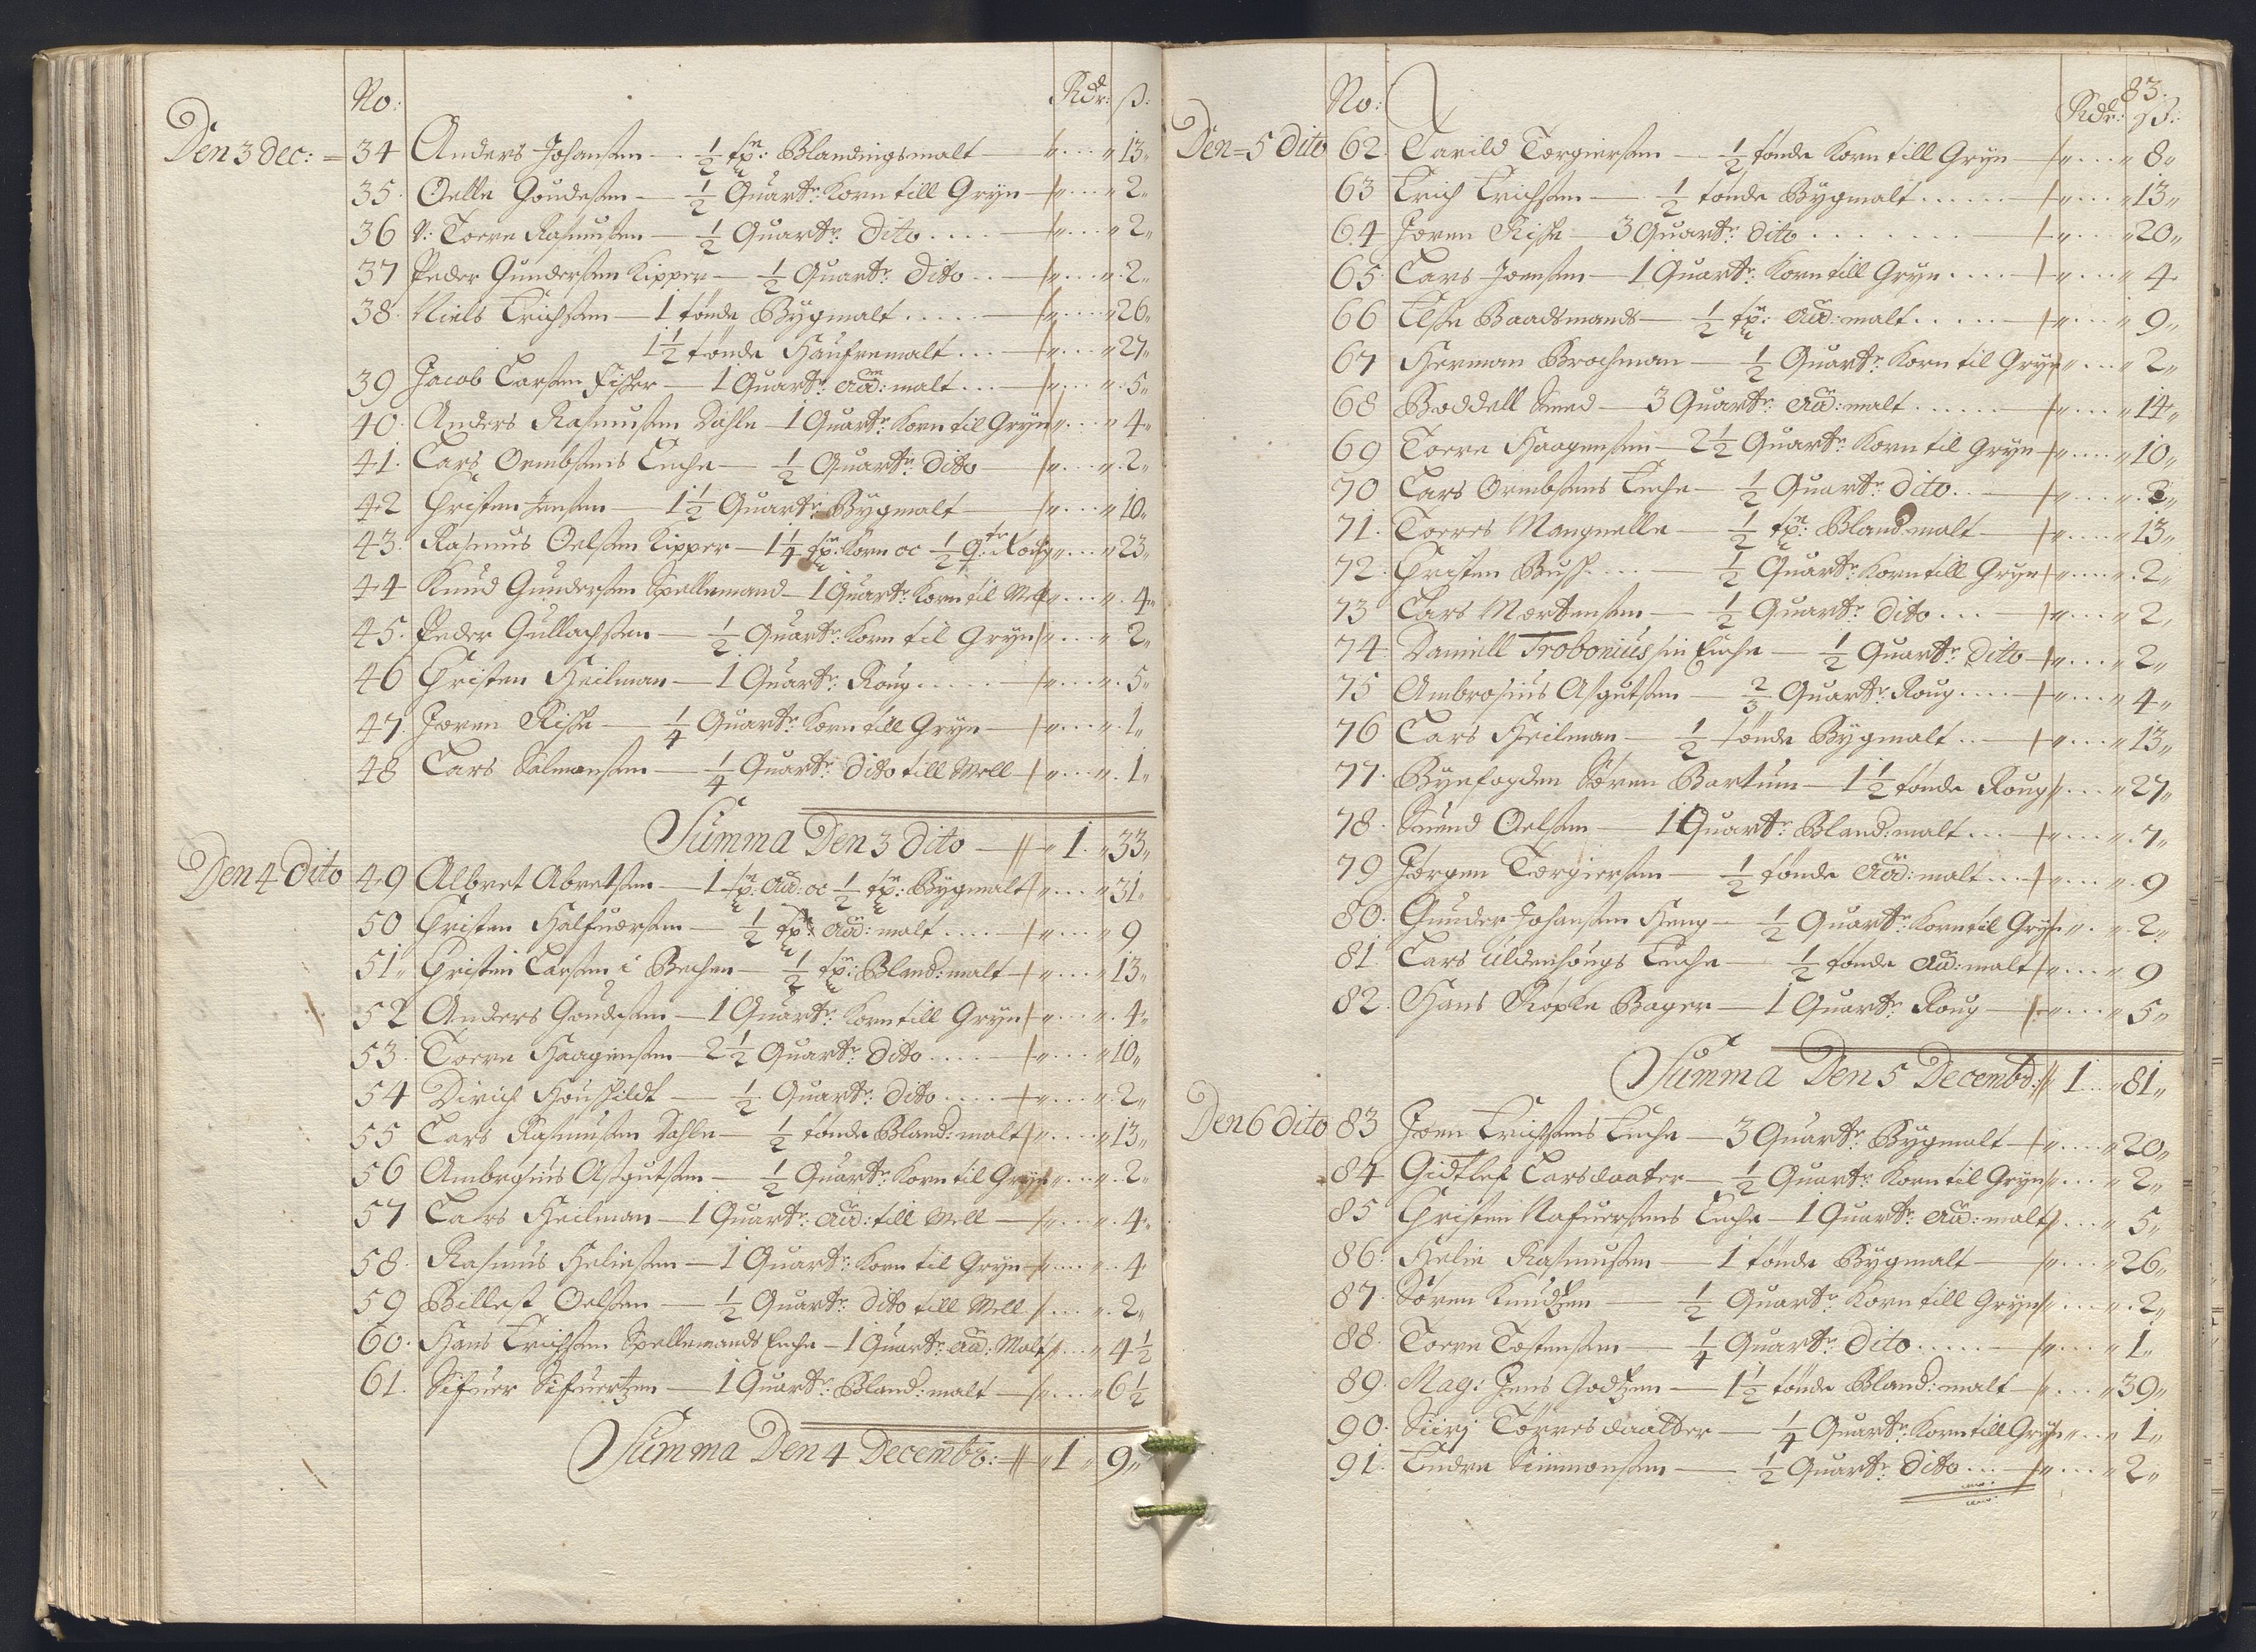 No: Rdr: ß:
Den 3 dec: = 34 Anders Johansen — ½ tøn: Blandingsmalt — 13
35. Oelle Goudesen — ½ Quartr: Korn till Gryn — 2
36 V: Toere Rasmusen — ½ Quartr: dito — 2
37 Peder Gundersen Kipper — ½ Quartr: dito — 2
38. Niels Erichsen — 1 tønde Bygmalt — 26
1½ tønde Haufremalt — 27
39 Jacob Larsen Fisker — 1 Quartr: malt — 5
40. Anders Rasmusen Dahle — 1 Quartr: Korn til Gryn — 4
41. Lars Ormbsens Enche — ½ Quartr: dito — 2
42 Christen Jensen — 1½ Quartr: Bygmalt — 10
43. Rasmus Oelsen Kipper — 1¼ tøn: Korn oc ½ Qtr: Roug — 23
44 Knud Gundersen Spellemand — 1 Quartr: Korn til Mell — 4
45. Peder Gullachsen — ½ Quartr: Korn til Gryn — 2
46 Christen Heilman — 1 Quartr: Roug — 5
47. Joren Riske — ¼ Quartr: Korn till Gryn — 1
48 Lars Salmonsen — ¼ Quartr: dito till Mell — 1
Summa Den 3 dito — 1. 33
Den 4 dito 49 Albret Abretsen — 1 tøn: oc ½ tøn: Bygmalt — 31
50 Christen Halfuorsen — ½ tøn: malt — 9
51 Christen Larsen i Bechen — ½ tøn: Bland: malt — 13
52 Anders Goudesen — 1 Quartr: Korn till Gryn — 4
53. Toere Haagensen — 2½ Quartr: dito — 10
54 Dirich Houskildt — ½ Quartr: dito — 2
55 Lars Rasmusen Dahle — ½ tønde Bland: malt — 13
56 Ambrosius Asgutsen — ½ Quartr: Korn til Gryn — 2
57 Lars Heilman — 1 Quartr: till Mell — 4
58. Rasmus Heliesen — 1 Quartr: Korn til Gryn — 4
59 Billest Oelsen — ½ Quartr: dito till Mell — 2
60. Hans Erichsen Spellemands Enche — 1 Quartr: Malt — 4½
61. Sifuer Sifuertzen — 1 Quartr: Bland: malt — 6½
Summa Den 4 Decembr: — 1 9
83.
No: Rdr: ß:
Den = 5 dito 62. Tarild Torgiersen — ½ tønde Korn till Gryn — 8
63 Erich Erichsen — ½ tønde Bygmalt — 13
64 Joren Riske — 3 Quartr: dito — 20
65. Lars Joensen — 1 Quartr: Korn till Gryn — 4
66 Else Baadsmands — ½ tøn: malt — 9
67 Herman Brochman — ½ Quartr: Korn til Gryn — 2
68 Boddell Smed — 3 Quartr: malt — 14
69 Toere Haagensen — 2½ Quartr: Korn til Gryn — 10
70 Lars Ormbsens Enche — ½ Quartr: dito — 2
71. Toeres Mangnelle — ½ tøn: Bland: malt — 13
72. Christen Busk — ½ Quartr: Korn till Gryn — 2
73 Lars Mortensen — ½ Quartr: dito — 2
74 Daniell Trobonius sin Enche — ½ Quartr: dito — 2
75 Ambrosius Asgutsen — ⅔ Quartr: Roug — 4
76 Lars Heilman — ½ tønde Bygmalt — 13
77. Byefogden Søren Bartum — 1½ tønde Roug — 27
78. Suend Oelsen — 1 Quartr: Bland: malt — 7
79 Jørgen Torgiersen — ½ tønde malt — 9
80. Gunder Johansen Heng — ½ Quartr: Korn til Gryn — 2
81. Lars Uldenhougs Enche — ½ tønde malt — 9
82. Hans Røple Bager — 1 Quartr: Roug — 5
Summa Den 5 Decembr: 1 81
Den 6 dito 83 Joen Erichsens Enche — 3 Quartr: Bygmalt — 20
84 Gidtlef Larsdaater — ½ Quartr: Korn til Gryn — 2
85 Christen Rafuersens Enche — 1 Quartr: malt — 5
86. Helie Rasmusen — 1 tønde Bygmalt — 26
87. Søren Knudtzen — ½ Quartr: Korn till Gryn — 2
88. Toere Tostensen — ¼ Quartr: dito — 1
89. Mag: Jens Godtzen — 1½ tønde Bland: malt — 39
90. Siirj Torresdaatter — ¼ Quartr: Korn till Gryn — 1
91. Endre Simmonsen — ½ Quartr: dito — 2